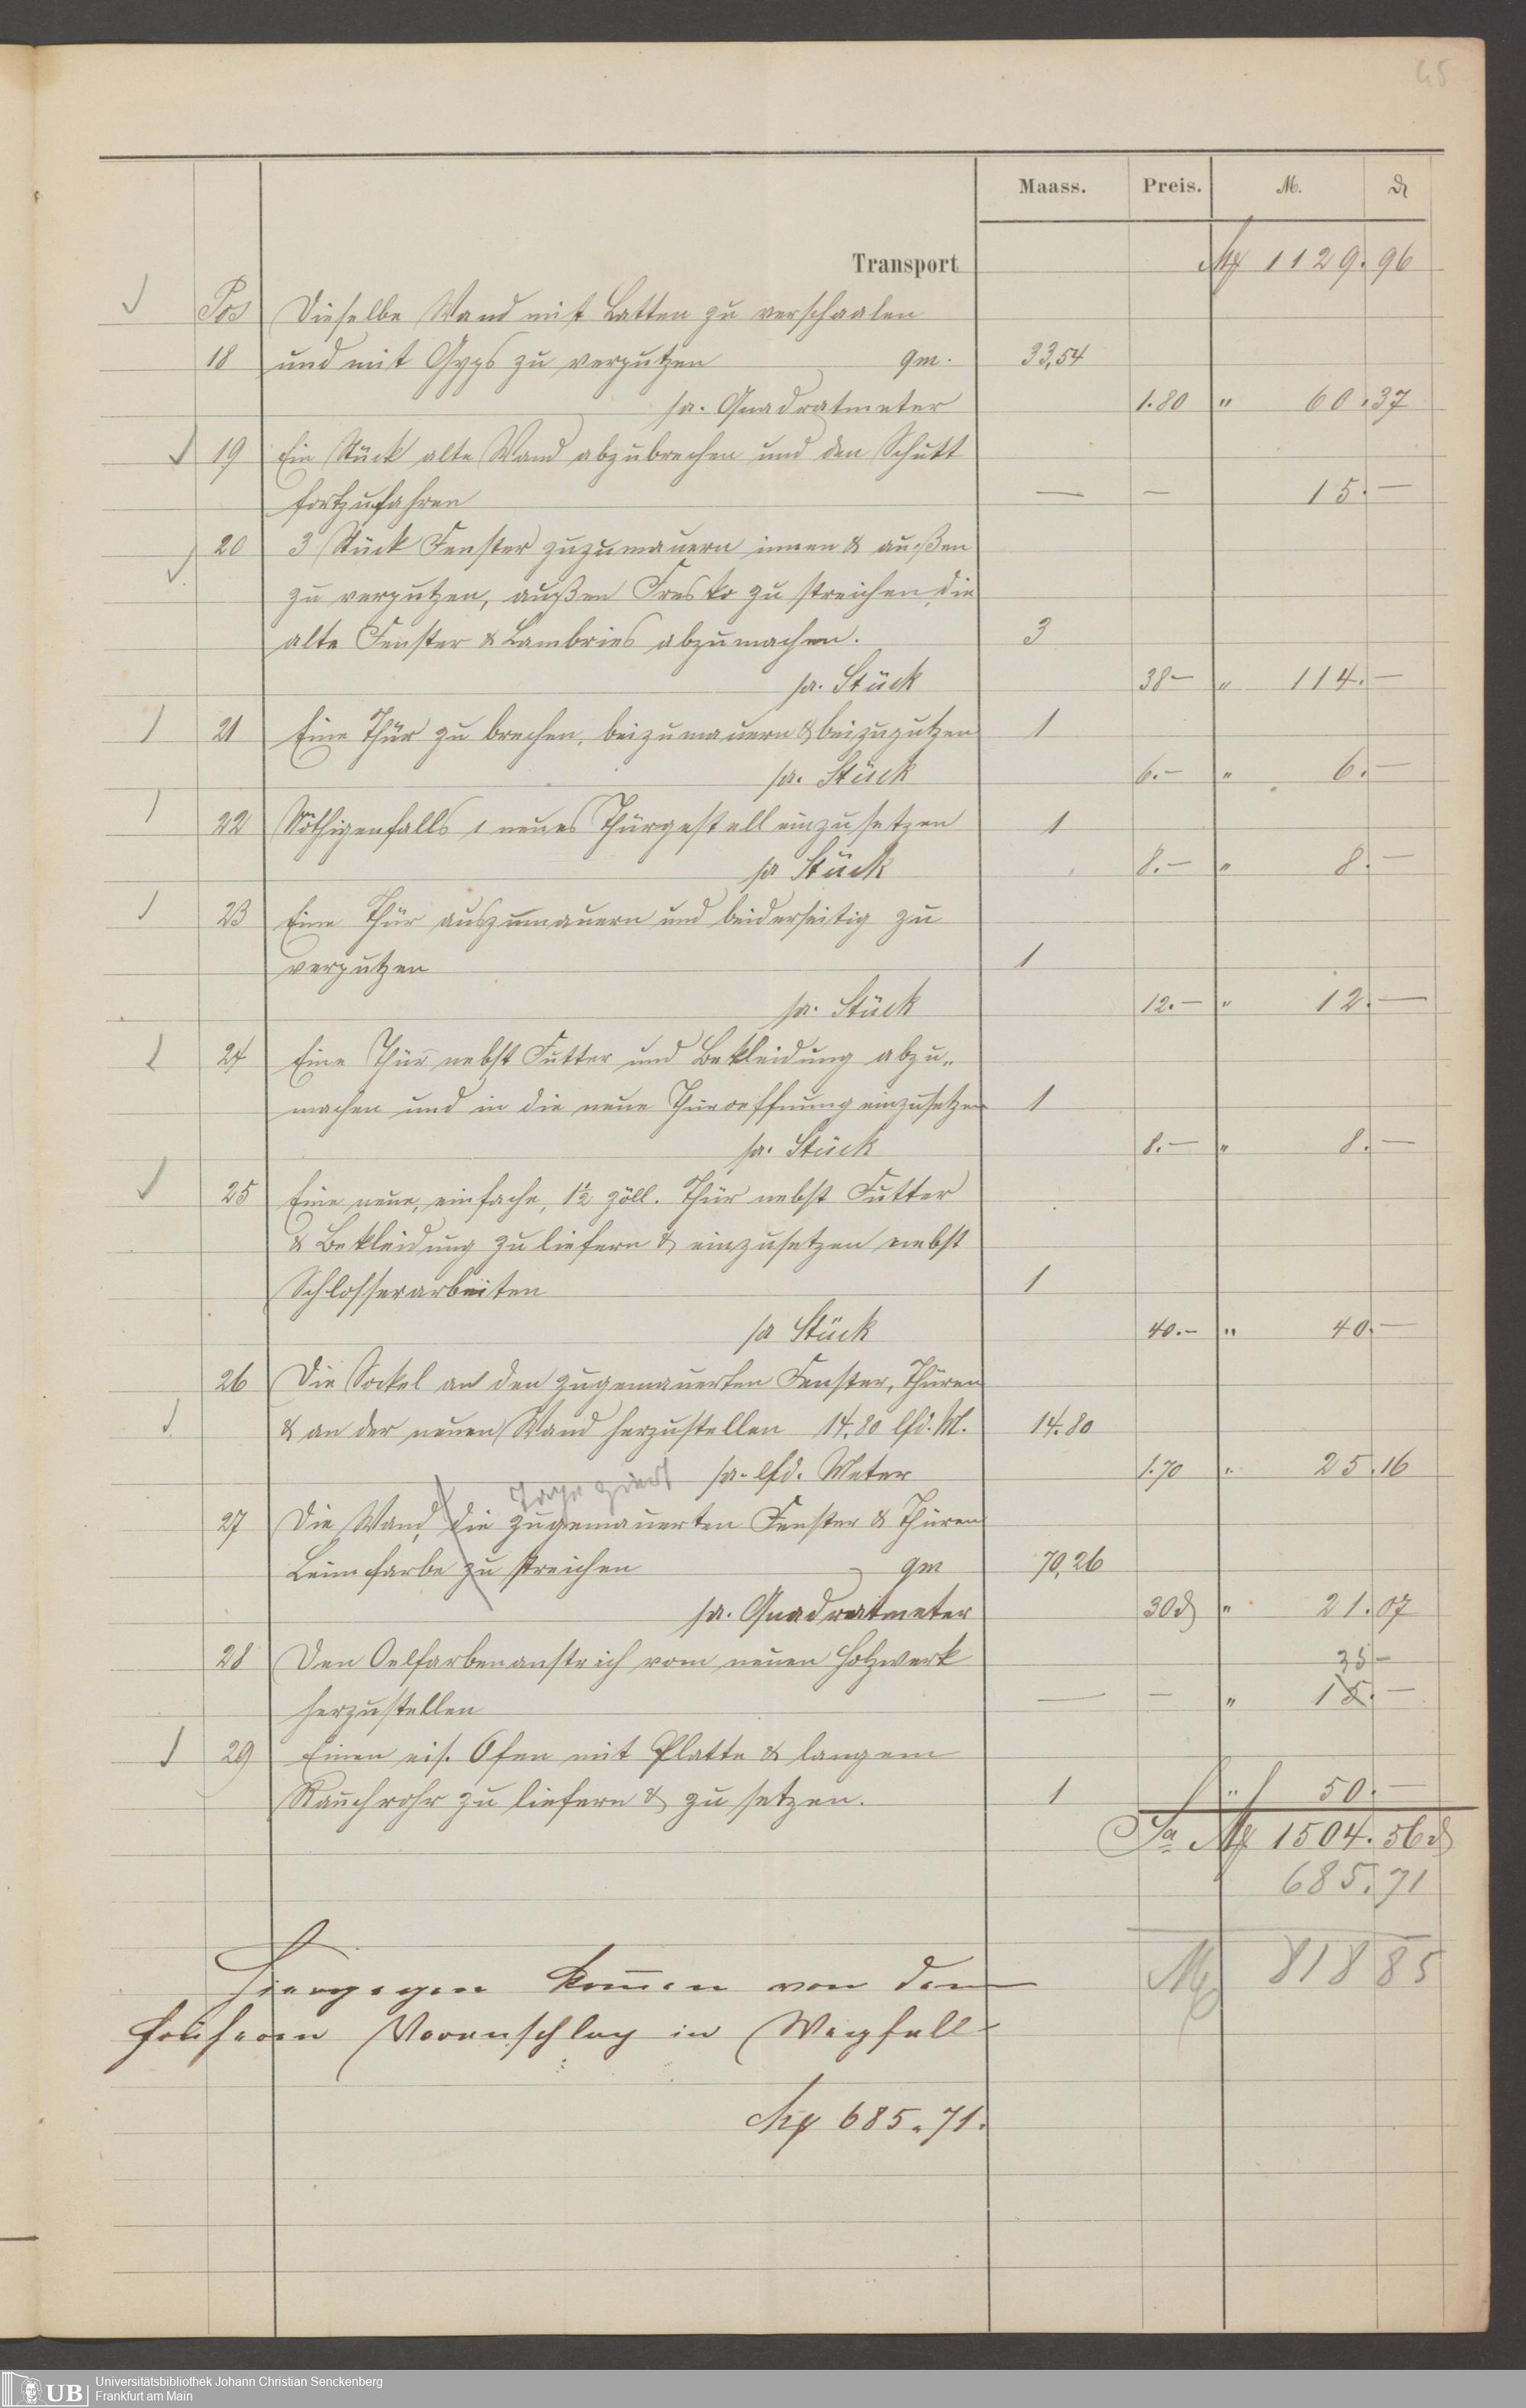 45
Maass. Preis. M. ₰
Transport M 1129. 96
Pos Dieselbe Wand mit Latten zu verschaalen
18 und mit Gyps zu verputzen qm. 33,54
pr. Quadratmeter 1.80 " 60.37
19 Ein Stück alte Wand abzubrechen und den Schutt
fortzufahren — — 15.—
20 3 Stück Fenster zuzumauern innen & außen
zu verputzen, außen Fresko zu streichen, die
alte Fenster & Lambries abzumachen. 3
pr. Stück 38— " 114.—
21 Eine Thür zu brechen, beizumauern & beizuputzen 1
pr. Stück 6.— " 6.—
22 Nöthigenfalls 1 neues Thürgestell einzusetzen 1
pr Stück 8.— " 8.—
23 Eine Thür auszumauern und beiderseitig zu
verputzen 1
pr. Stück 12.— " 12.—
24 Eine Thür nebst Futter und Bekleidung abzu-
machen und in die neue Thüroeffnung einzusetzen 1
pr. Stück 8.— " 8.—
25 Eine neue, einfache, 1½ zöll. Thür nebst Futter
& Bekleidung zu liefern & einzusetzen nebst
Schlosserarbeiten 1
pr Stück 40.— " 40.—
26 Die Sockel an den zugemauerten Fenster, Thüren
& an der neuen Wand herzustellen 14.80 lfd. M. 14.80
pr. lfd. Meter 1.70 " 25.16
27 Die Wand, die zugemauerten Fenster & Thüren
Leimfarbe zu streichen qm 70,26
pr. Quadratmeter 30₰ " 21.07
28 Den Oelfarbenanstrich vom neuen Holzwerk 35—
herzustellen — — " 15.—
29 Einen eis. Ofen mit Platte & langem
Rauchrohr zu liefern & zu setzen. 1 " 50.—
Sa M 1504.56₰
685.71
M 818 85
Hiergegen kommen von dem
früheren Voranschlag in Wegfall
M 685.71.
UB Universitätsbibliothek Johann Christian Senckenberg
Frankfurt am Main